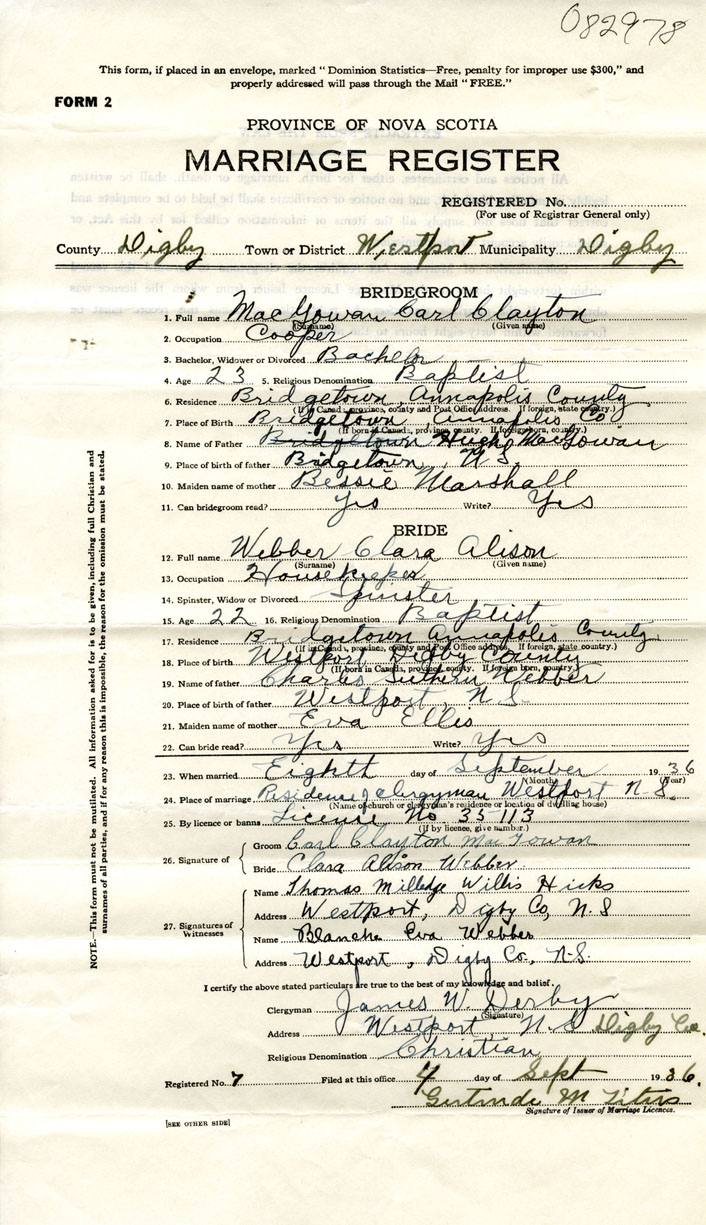 082978
This form, if placed in an envelope, marked "Dominion Statistics—Free, penalty for improper use $300," and
properly addressed will pass through the Mail "FREE."
FORM 2
PROVINCE OF NOVA SCOTIA
MARRIAGE REGISTER
REGISTERED No.
(For use of Registrar General only)
County Digby Town or District Westport Municipality Digby
BRIDEGROOM
1. Full name MacGowan Carl Clayton
(Surname) (Given name)
2. Occupation Cooper
3. Bachelor, Widower or Divorced Bachelor
4. Age 23 5. Religious Denomination Baptist
6. Residence Bridgetown, Annapolis County
(If in Canada, province, county and Post Office address. If foreign, state country.)
7. Place of Birth Bridgetown Annapolis Co
(If born in Canada, province, county. If foreign born, country.)
8. Name of Father Bridgetown Hugh MacGowan
9. Place of birth of father Bridgetown, N S
10. Maiden name of mother Bessie Marshall
11. Can bridegroom read? Yes Write? Yes
BRIDE
12. Full name Webber Clara Alison
(Surname) (Given name)
13. Occupation Housekeeper
14. Spinster, Widow or Divorced Spinster
15. Age 22 16. Religious Denomination Baptist
17. Residence Bridgetown Annapolis County
(If in Canada, province, county and Post Office address. If foreign, state country.)
18. Place of birth Westport Digby County
(If born in Canada, province, county. If foreign born, country.)
19. Name of father Charles Luthern Webber
20. Place of birth of father Westport, N.S.
21. Maiden name of mother Eva Ellis
22. Can bride read? Yes Write? Yes
23. When married Eighth day of September 1936
(Month) (Year)
24. Place of marriage Residence of clergyman Westport N.S.
(Name of church or clergyman's residence or location of dwelling house)
25. By licence or banns License No 35113
(If by licence, give number.)
26. Signature of
Groom Carl Clayton MacGowan
Bride Clara Alison Webber
27. Signatures of Witnesses
Name Thomas Milledge Willis Hicks
Address Westport, Digby Co, N.S
Name Blanche Eva Webber
Address Westport, Digby Co., N.S.
I certify the above stated particulars are true to the best of my knowledge and belief.
Clergyman James W. Derby
(Signature)
Address Westport, N.S Digby Co.
Religious Denomination Christian
Registered No. 7 Filed at this office 4 day of Sept 1936.
Gertrude M Titus
Signature of Issuer of Marriage Licences.
[SEE OTHER SIDE]
NOTE.—This form must not be mutilated. All information asked for is to be given, including full Christian and
surnames of all parties, and if for any reason this is impossible, the reason for the omission must be stated.